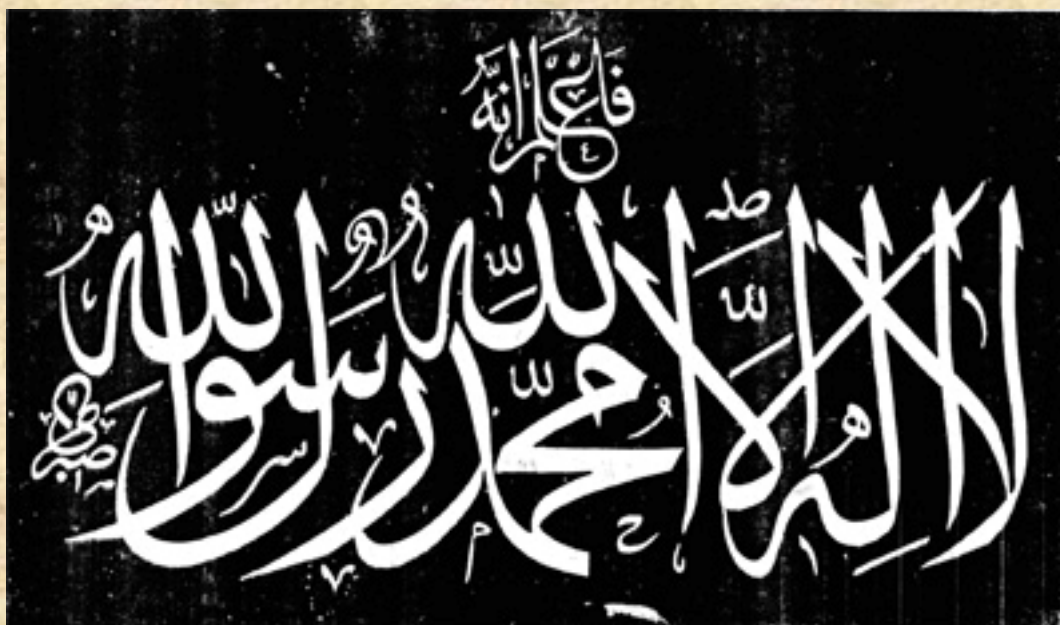 فَاعْلَمْ اَنَّهُ
لا اله الا الله محمد رسول الله